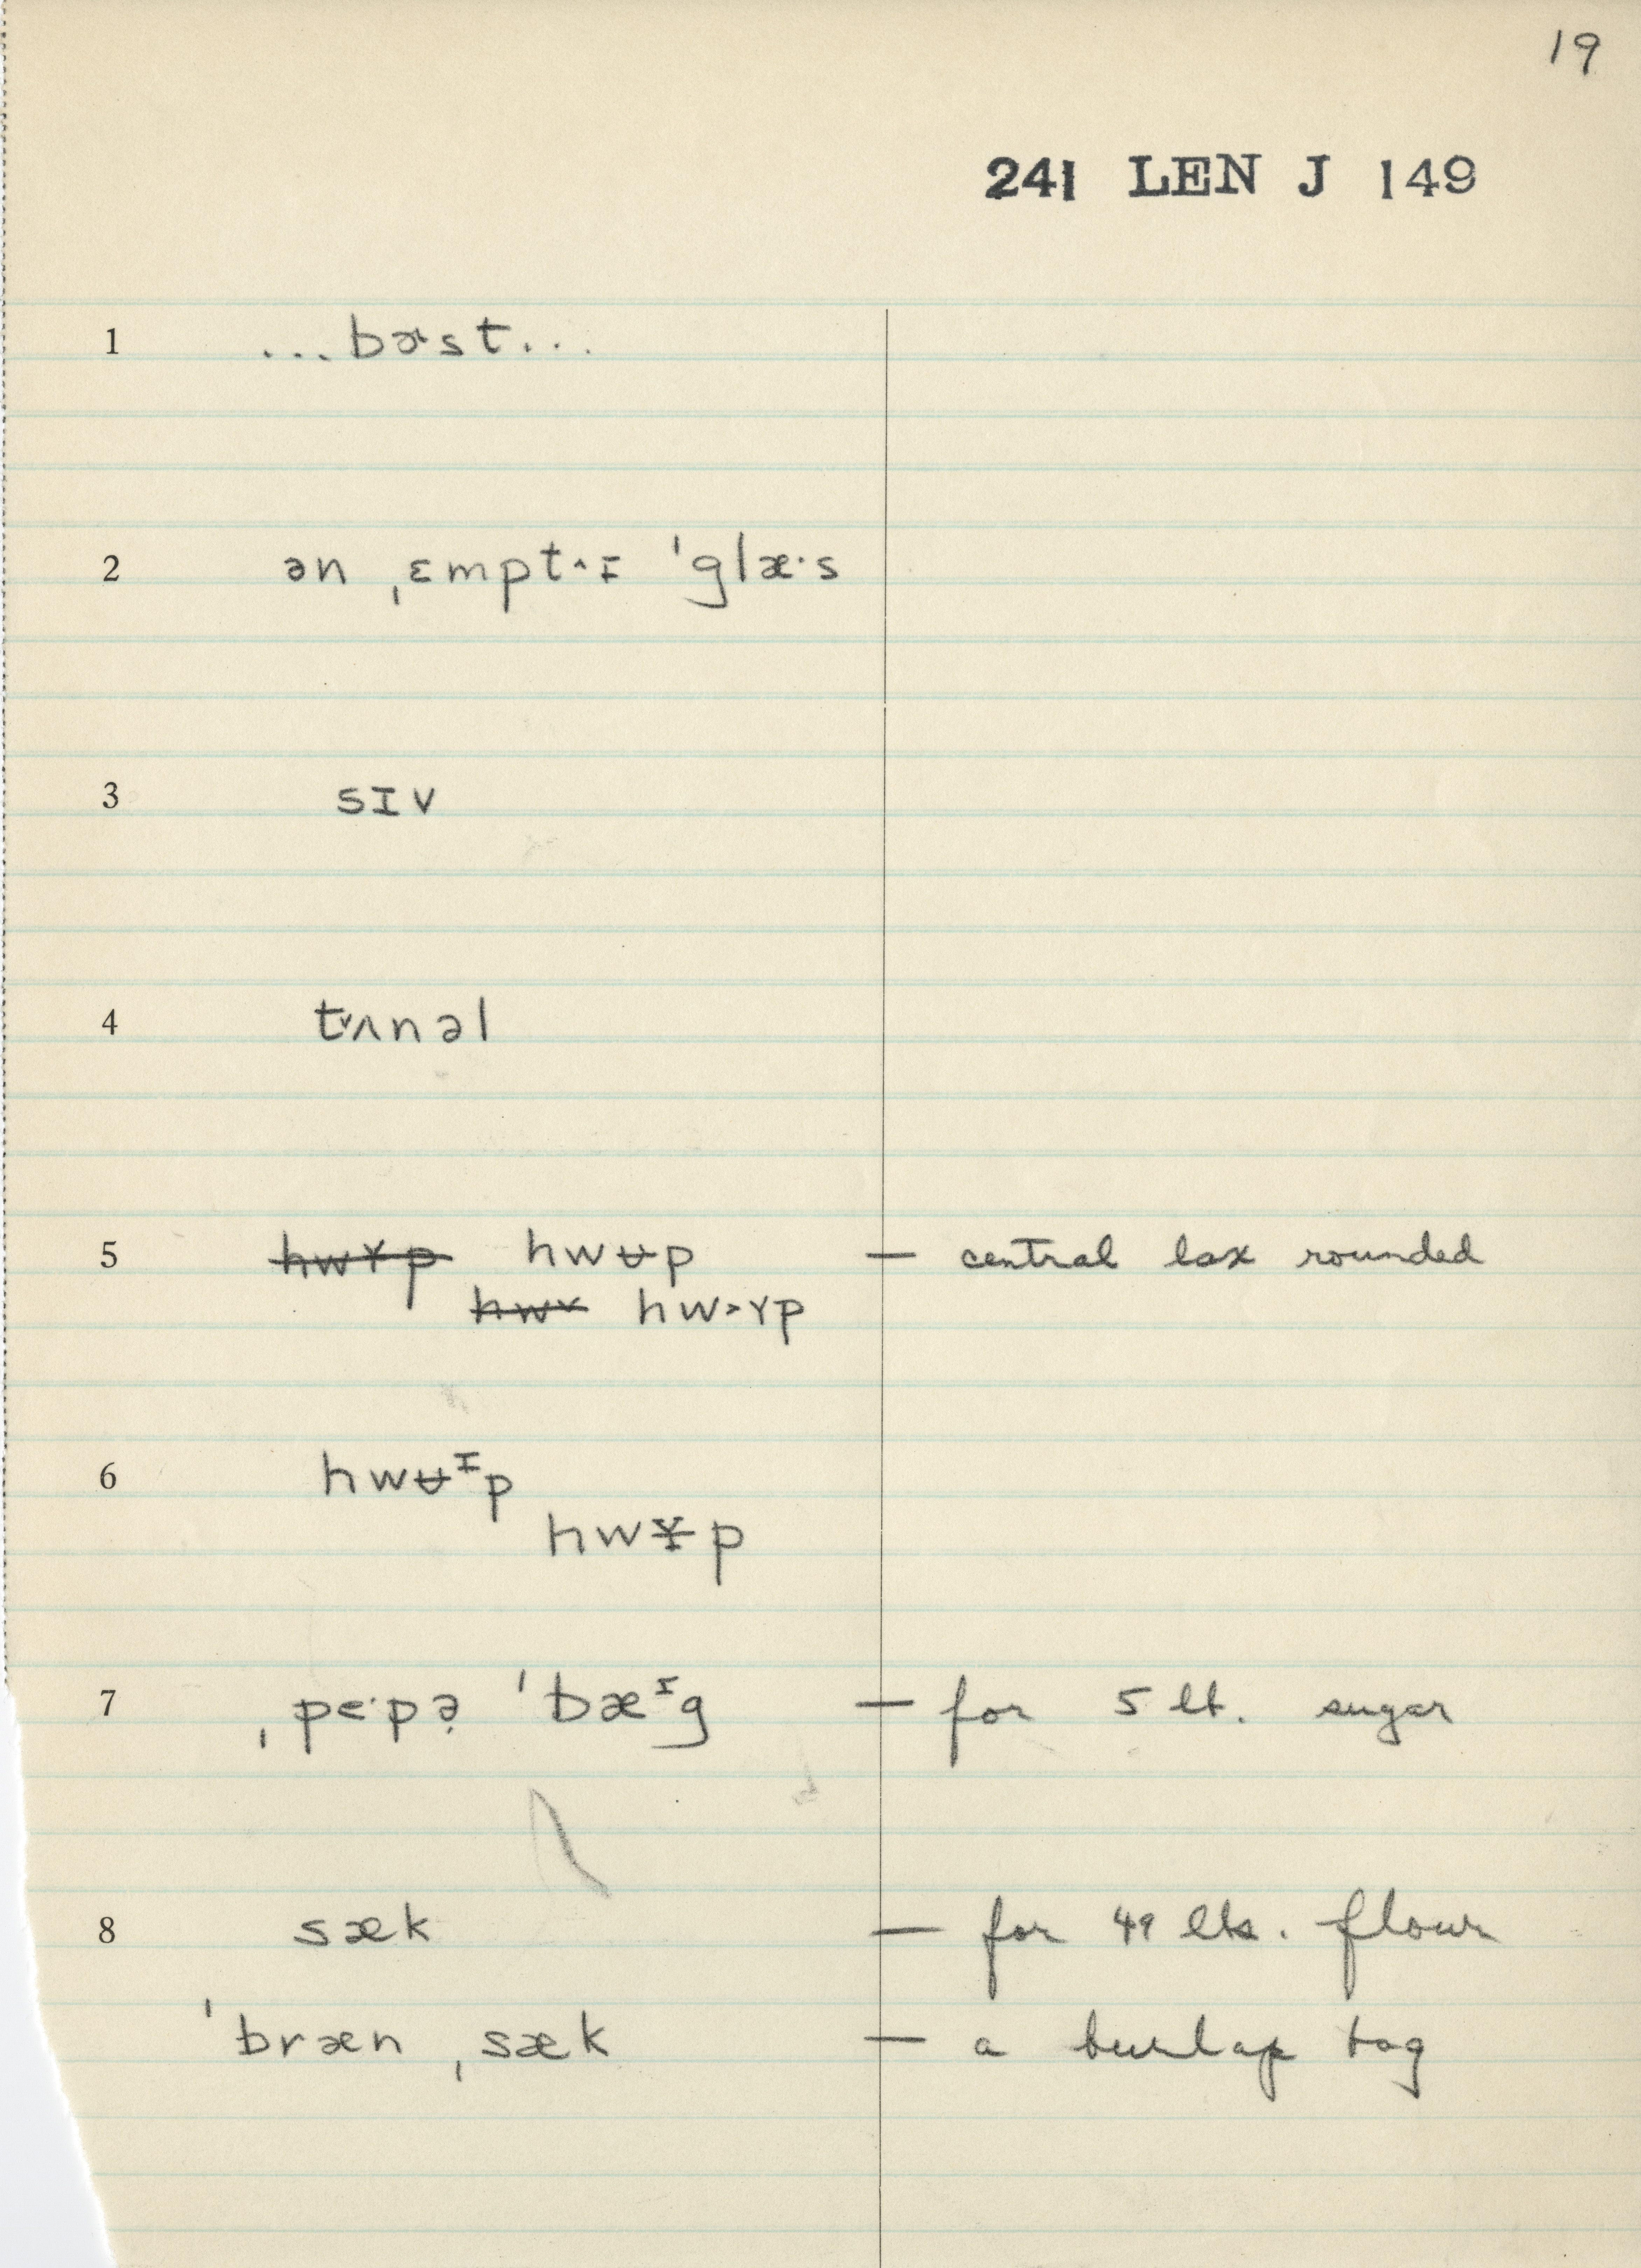 19
241 LEN J 149
1 ...bɚst...
2 ən ˌɛmpt˄ɪ ˈglæ·s
3 sɪv
4 t˅ʌnəl
5 h̶w̶ʏ̶p̶ hwʊ̵p — central lax rounded
h̶w̶ʏ̶ hw˃ʏp
6 hwʊ̵ᶦp
hwʏ̵p
7 ˌpe·pə̣ ˈbæᶦg — for 5 lb. sugar
8 sæk — for 49 lbs. flour
ˈbræn ˌsæk — a burlap bag